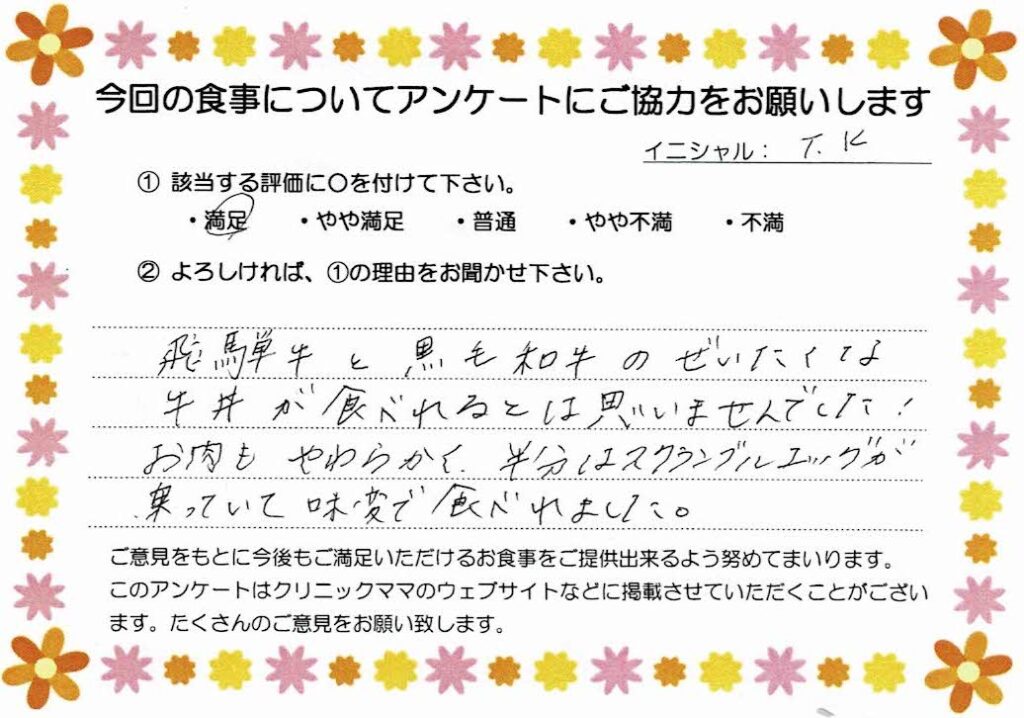 今回の食事についてアンケートにご協力をお願いします
イニシャル： T. K
① 該当する評価に〇を付けて下さい。
・満足 ・やや満足 ・普通 ・やや不満 ・不満
② よろしければ、①の理由をお聞かせ下さい。
飛騨牛と黒毛和牛のぜいたくな
牛丼が食べれるとは思いませんでした！
お肉もやわらかく、半分はスクランブルエッグが
乗っていて味変で食べれました。
ご意見をもとに今後もご満足いただけるお食事をご提供出来るよう努めてまいります。
このアンケートはクリニックママのウェブサイトなどに掲載させていただくことがござい
ます。たくさんのご意見をお願い致します。